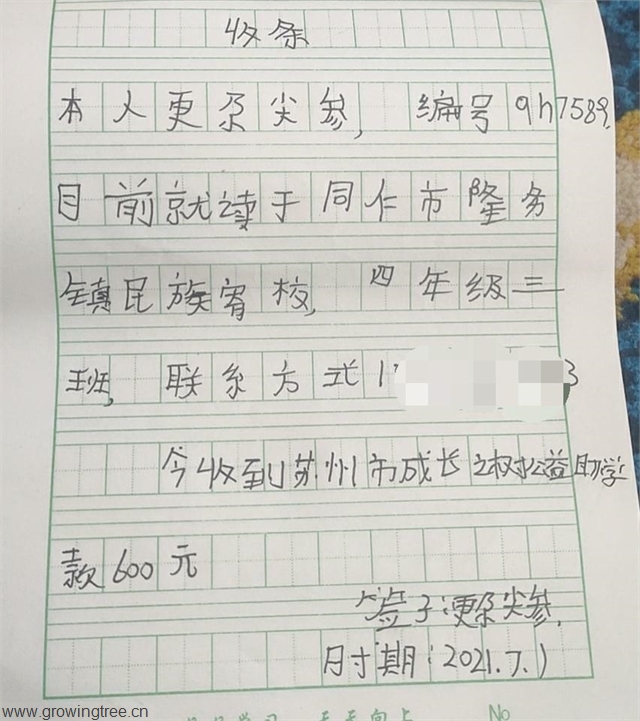 收条
本人更尕尖参, 编号qh7589,
目前就读于同仁市隆务
镇民族寄校, 四年级三
班, 联系方式1 3
今收到苏州市成长之树公益助学
款600元
签子:更尕尖参.
日寸期:2021.7.1
No
www.growingtree.cn